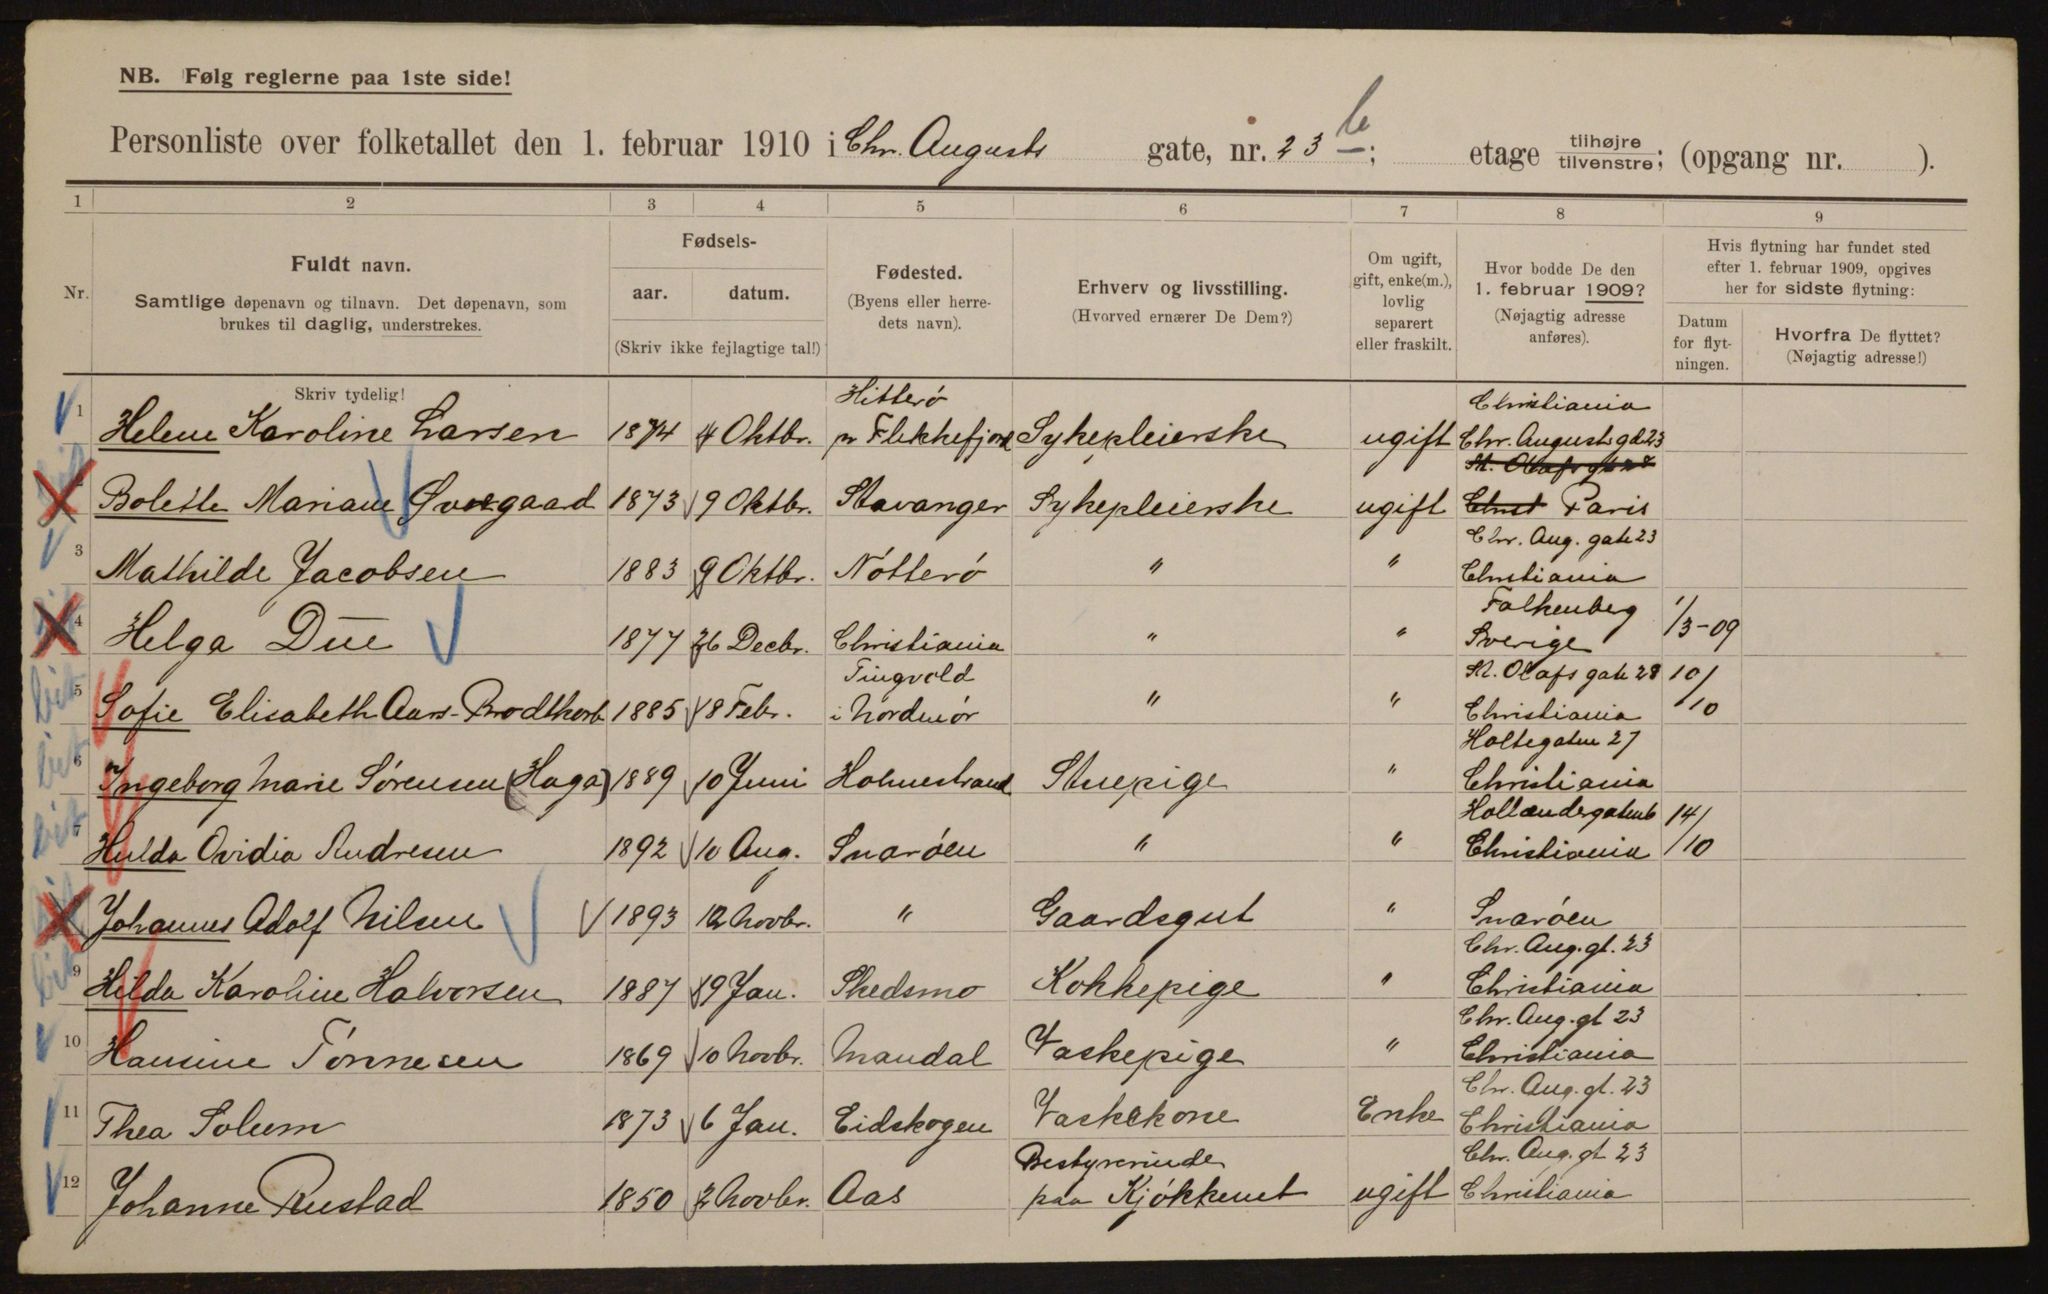 NB. Følg reglerne paa 1ste side!
Personliste over folketallet den 1. februar 1910 i Chr. Augusts gate, nr. 23 b; etage tilhøjre tilvenstre; (opgang nr. ).
1 2 3 4 5 6 7 8 9
Nr.
Fuldt navn.
Samtlige døpenavn og tilnavn. Det døpenavn, som
brukes til daglig, understrekes.
Skriv tydelig!
Fødsels-
aar. datum.
(Skriv ikke fejlagtige tal!)
Fødested.
(Byens eller herre-
dets navn).
Erhverv og livsstilling.
(Hvorved ernærer De Dem?)
Om ugift,
gift, enke(m.),
lovlig
separert
eller fraskilt.
Hvor bodde De den
1. februar 1909?
(Nøjagtig adresse
anføres).
Hvis flytning har fundet sted
efter 1. februar 1909, opgives
her for sidste flytning:
Datum
for flyt-
ningen.
Hvorfra De flyttet?
(Nøjagtig adresse!)
Hitterö Christiania
1 Helene Karoline Larsen 1874 4 Oktbr. pr Flekkefjord Sykepleierske ugift Chr. Augusts gd 23
St. Olafs gt 28
2 Bolette Mariane Øvregaard 1873 9 Oktbr. Stavanger Sykepleierske ugift Christ Paris
Chr. Aug. gate 23
3 Mathilde Jacobsen 1883 9 Oktbr. Nötterö " " Christiania
Falkenberg
4 Helga Due 1877 26 Decbr. Christiania " " Sverige 1/3-09
Tingvold St. Olafs gate 28
5 Sofie Elisabeth Aars-Brodtkorb 1885 18 Febr. i Nordmör " " Christiania 10/10
Holtegaten 27
6 Ingeborg Marie Sörensen (Haga) 1889 10 Juni Holmestrand Stuepige " Christiania
Hollændergaten 6
7 Hulda Ovidia Andresen 1892 10 Aug. Snaröen " " Christiania 14/10
Johannes Adolf Nilsen 1893 12 Novbr. " Gaardsgut " Snaröen
Chr. Aug. gt. 23
9 Hilda Karoline Halvorsen 1887 19 Jan. Skedsmo Kokkepige " Christiania
Chr. Aug. gt 23
10 Hansine Tönnesen 1869 10 Novbr. Mandal Vaskepige " Christiania
Chr. Aug. gt. 23
11 Thea Solum 1873 6 Jan. Eidskogen Vaskekone Enke Christiania
Bestyrerinde Chr. Aug. gt 23
12 Johanne Rustad 1850 2 Novbr. Aas paa Kjökkenet ugift Christiania